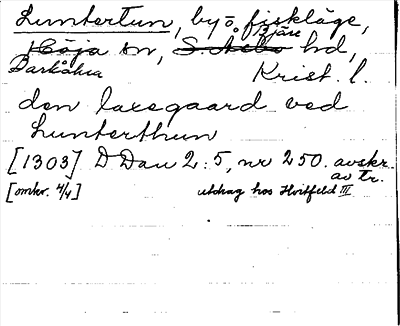 Luntertun, by o. fiskläge,
Höja sn, S. Åsbo hd,
Bjäre
Barkåkra Krist. l.
den laxegaard ved
Lunterthun
[1303] D Dan 2:5, nr 250. avskr.
av tr.
[omkr. 4/4] utdrag hos Hvitfeld III